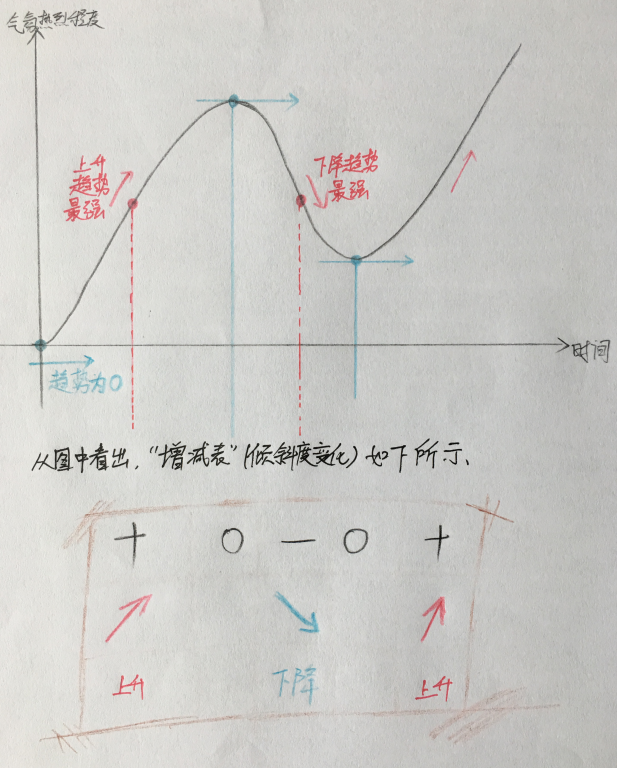 气氛热烈程度
上升
趋势
最强
下降趋势
最强
时间
趋势为0
从图中看出,“增减表”(倾斜度变化)如下所示、
+ 0 — 0 +
上升 下降 上升